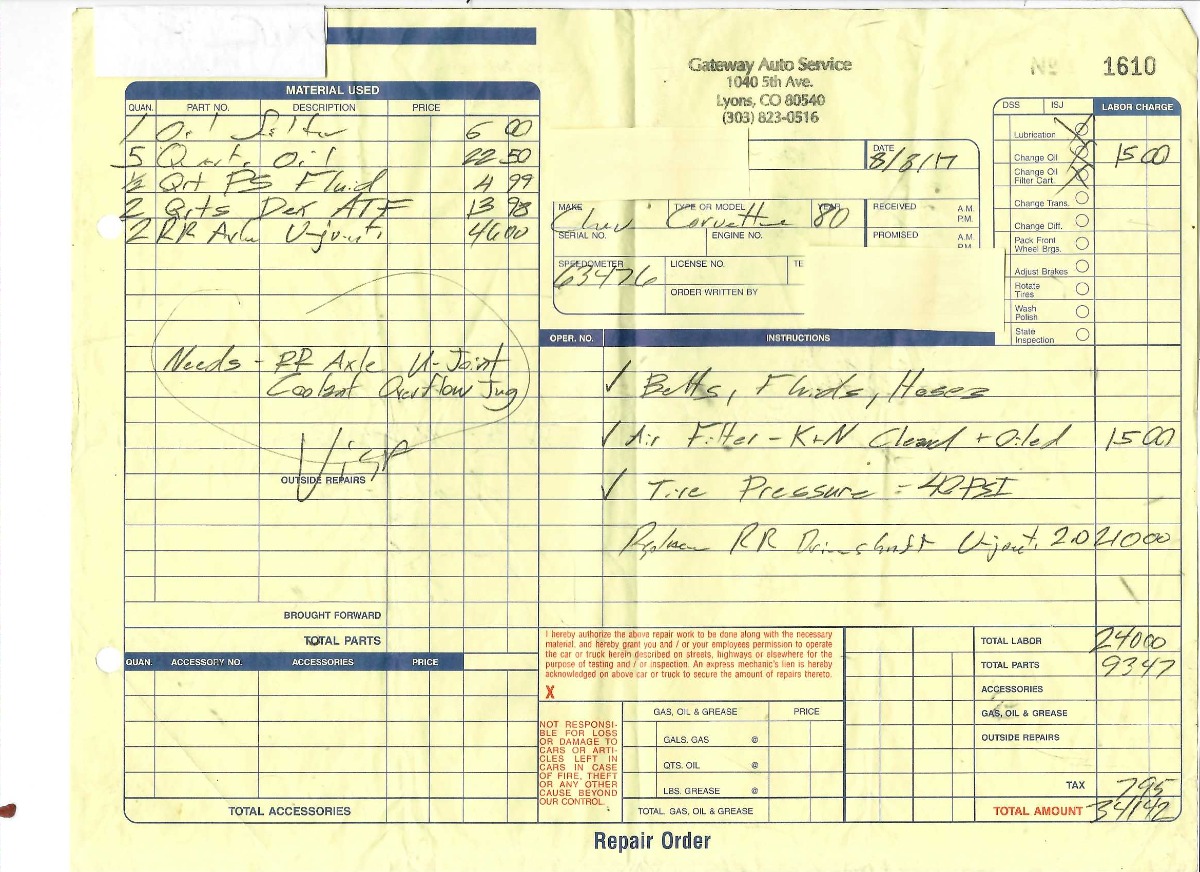 Gateway Auto Service
1040 5th Ave.
Lyons, CO 80540
(303) 823-0516
Nº 1610
MATERIAL USED
QUAN. PART NO. DESCRIPTION PRICE
1 Oil filter 6 00
5 Quarts Oil 22 50
½ Qrt PS Fluid 4 99
2 Qrts Dex ATF 13 98
2 RR Axle U-joints 46 00
Needs - RR Axle U-Joint
Coolant Overflow Jug
Visa
OUTSIDE REPAIRS
BROUGHT FORWARD
TOTAL PARTS
QUAN. ACCESSORY NO. ACCESSORIES PRICE
TOTAL ACCESSORIES
DATE
8/3/17
MAKE TYPE OR MODEL YEAR
Chev Corvette 80
SERIAL NO. ENGINE NO.
RECEIVED A.M.
P.M.
PROMISED A.M.
P.M.
SPEEDOMETER LICENSE NO. TE
63476
ORDER WRITTEN BY
DSS ISJ LABOR CHARGE
Lubrication
Change Oil 15 00
Change Oil
Filter Cart.
Change Trans.
Change Diff.
Pack Front
Wheel Brgs.
Adjust Brakes
Rotate
Tires
Wash
Polish
State
Inspection
OPER. NO. INSTRUCTIONS
✓ Belts, Fluids, Hoses
✓ Air Filter - K+N Cleaned + Oiled 15 00
✓ Tire Pressure = 40 PSI
Replace RR Driveshaft U-joints 2.0 210 00
I hereby authorize the above repair work to be done along with the necessary
material, and hereby grant you and / or your employees permission to operate
the car or truck herein described on streets, highways or elsewhere for the
purpose of testing and / or inspection. An express mechanic's lien is hereby
acknowledged on above car or truck to secure the amount of repairs thereto.
X
NOT RESPONSI-
BLE FOR LOSS
OR DAMAGE TO
CARS OR ARTI-
CLES LEFT IN
CARS IN CASE
OF FIRE, THEFT
OR ANY OTHER
CAUSE BEYOND
OUR CONTROL.
GAS, OIL & GREASE PRICE
GALS. GAS @
QTS. OIL @
LBS. GREASE @
TOTAL. GAS, OIL & GREASE
TOTAL LABOR 240 00
TOTAL PARTS 93 47
ACCESSORIES
GAS, OIL & GREASE
OUTSIDE REPAIRS
TAX 7 95
TOTAL AMOUNT 341 42
Repair Order